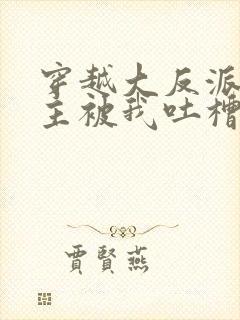 穿越大反派
主被我吐槽
賈賢燕